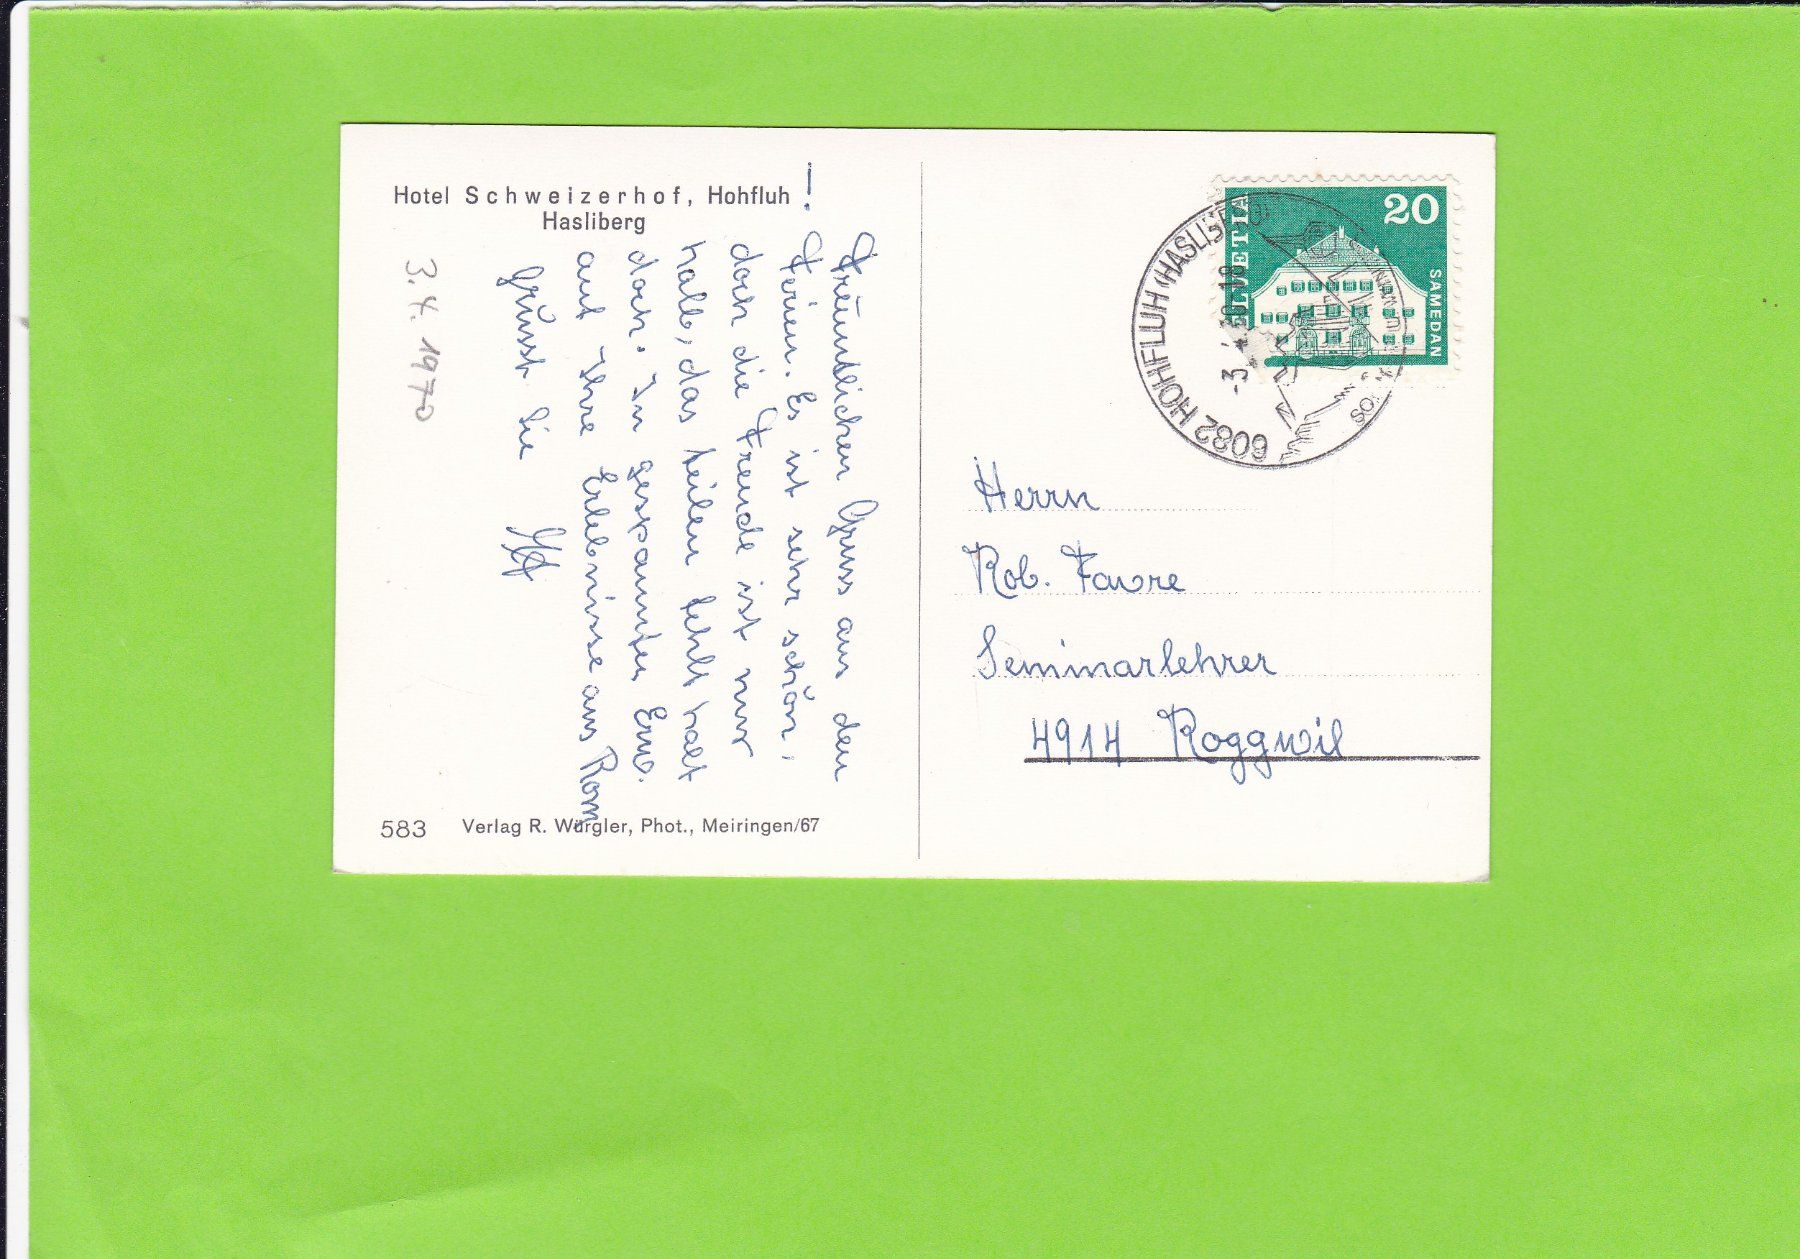 Hotel Schweizerhof, Hohfluh
Hasliberg
Freundlichen Gruss aus den
Ferien. Es ist sehr schön,
doch die Freude ist nur
halb, das teilen fehlt halt
doch. In gespannter Erw.
auf Ihre Erlebnisse aus Rom!
Grüsst Sie
3.4.1970
583 Verlag R. Würgler, Phot., Meiringen/67
HELVETIA
20
SAMEDAN
6082 HOHFLUH (HASLIBERG)
-3.4.70-18
Herrn
Rob. Favre
Seminarlehrer
4914 Roggwil